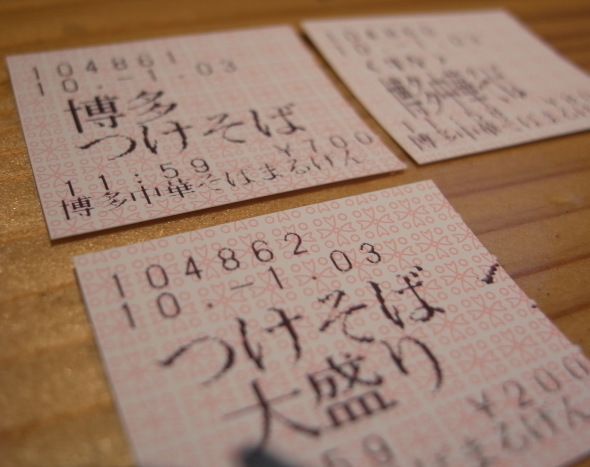 104861
10.-1.03
博多
つけそば
¥700
11:59
博多中華そばまるげん
104862
10.-1.03
つけそば
大盛り
¥200
59
ばまるげん
104860
10.-1.03
博多中華そば
博多中華そばまるげん